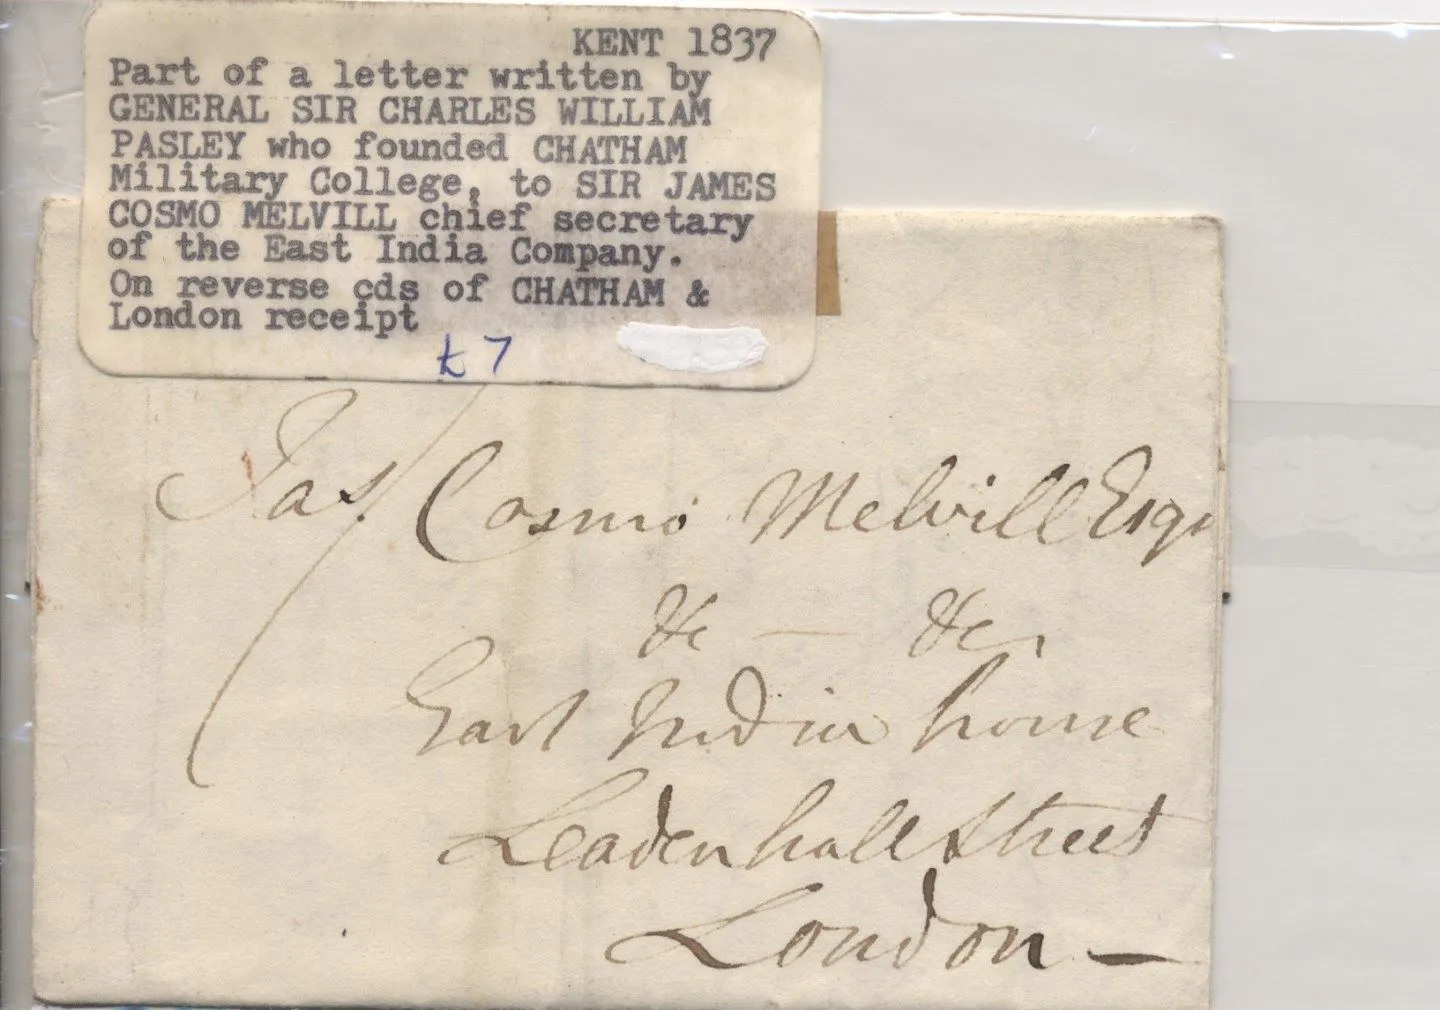 KENT 1837
Part of a letter written by
GENERAL SIR CHARLES WILLIAM
PASLEY who founded CHATHAM
Military College, to SIR JAMES
COSMO MELVILL chief secretary
of the East India Company.
On reverse cds of CHATHAM &
London receipt
£7
Jas. Cosmo Melvill Esqr
&c — &c
East India house
Leadenhall Street
London —